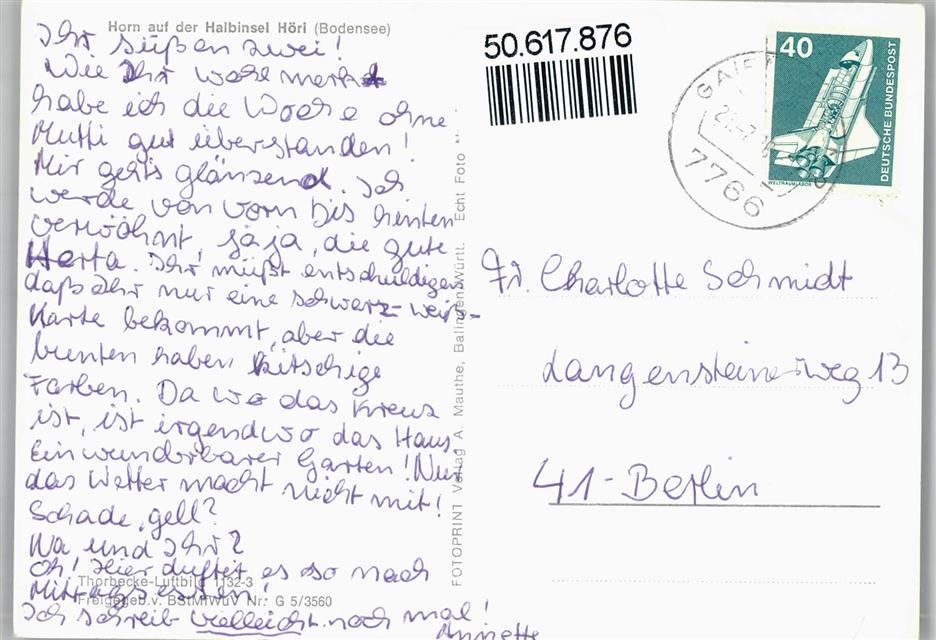 Horn auf der Halbinsel Höri (Bodensee)
Ihr süßen zwei!
Wie Ihr wohl merkt
habe ich die Woche ohne
Mutti gut überstanden!
Mir gehts glänzend. Ich
werde von vorn bis hinten
verwöhnt, ja ja, die gute
Herta. Ihr müßt entschuldigen
daß Ihr nur eine schwarz-weiß-
Karte bekommt, aber die
bunten haben kitschige
Farben. Da wo das Kreuz
ist, ist irgendwo das Haus.
Ein wunderbarer Garten! Nur
das Wetter macht nicht mit!
Schade, gell?
Na und Ihr?
Oh! Hier duftet es so nach
Mittagsessen!
Ich schreib vielleicht noch mal!
Annette
Thorbecke-Luftbild 1132-3
Freigegeb. v. BStMfWuV Nr. G 5/3560
FOTOPRINT Verlag A. Mauthe, Balingen/Württ. Echt Foto
50.617.876
7766
40
DEUTSCHE BUNDESPOST
WELTRAUMLABOR
Fr. Charlotte Schmidt
Langensteinerweg 13
41-Berlin